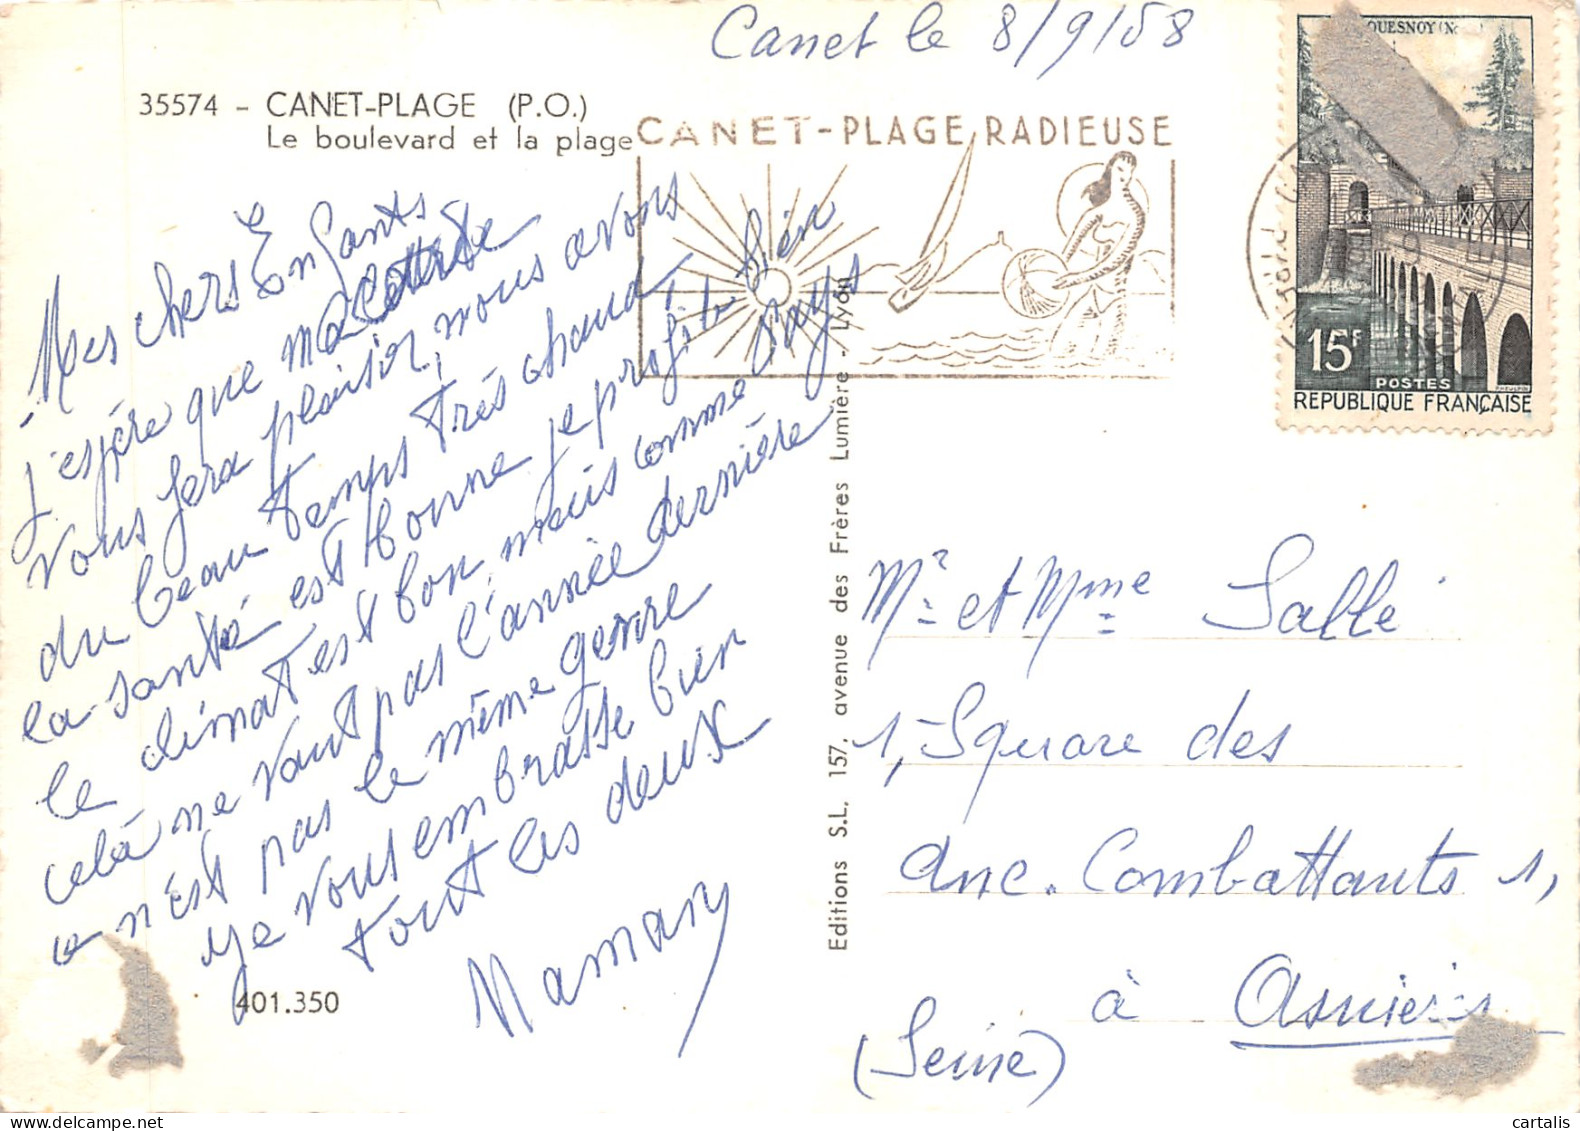 Canet le 8/9/58
35574 - CANET-PLAGE (P.O.)
Le boulevard et la plage
CANET-PLAGE RADIEUSE
QUESNOY (N
15F
POSTES
REPUBLIQUE FRANÇAISE
Mes chers Enfants
J'espère que ma carte
vous fera plaisir, nous avons
du beau temps très chaud,
la santé est bonne je profite bien
le climat est bon, mais comme pays
celà ne vaut pas l'année dernière
ce n'est pas le même genre
Je vous embrasse bien
tout les deux
Maman
401.350
Editions S.L. 157, avenue des Frères Lumière - Lyon
Mr et Mme Sallé
1, Square des
Anc. Combattants 1,
à Asnières
(Seine)
cartalis